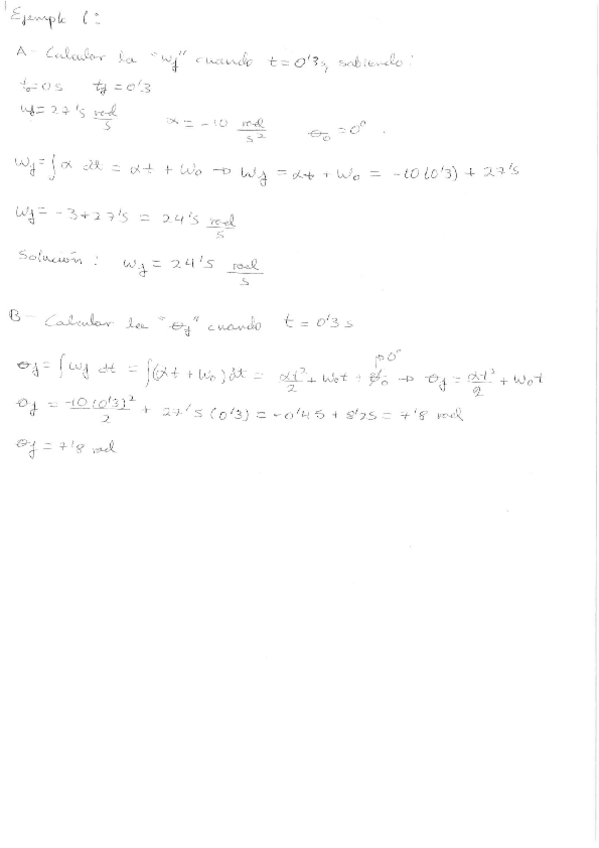 Ejemplo 1:
A - Calcular la "ωf" cuando t = 0'3s, sabiendo:
t₀=0s tf = 0'3
ωf= 27'5 rad/s α = -10 rad/s² θ₀ = 0º.
ωf = ∫ α dt = αt + ω₀ → ωf = αt + ω₀ = -10(0'3) + 27'5
ωf = -3+27'5 = 24'5 rad/s
Solución: ωf = 24'5 rad/s
B - Calcular la "θf" cuando t = 0'3 s
θf = ∫ ωf dt = ∫(αt + ω₀)dt = αt²/2 + ω₀t + θ₀ → 0º → θf = αt²/2 + ω₀t
θf = -10(0'3)²/2 + 27'5(0'3) = -0'45 + 8'25 = 7'8 rad
θf = 7'8 rad